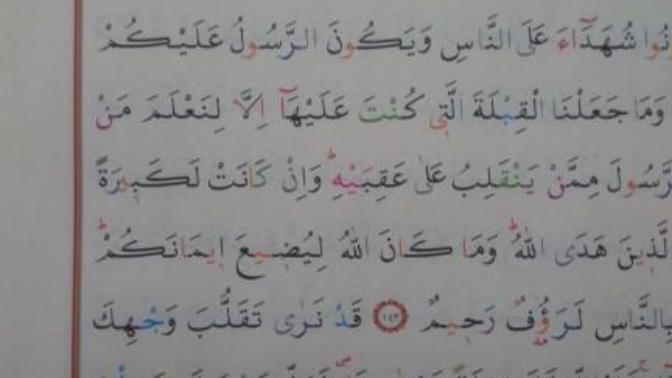 شُهَدَآءَ عَلَى النَّاسِ وَيَكُونَ الرَّسُولُ عَلَيْكُمْ
وَمَا جَعَلْنَا الْقِبْلَةَ الَّتِى كُنْتَ عَلَيْهَآ اِلَّا لِنَعْلَمَ مَنْ
مِمَّنْ يَنْقَلِبُ عَلٰى عَقِبَيْهِ وَاِنْ كَانَتْ لَكَبِيرَةً
هَدَى اللّٰهُ وَمَا كَانَ اللّٰهُ لِيُضِيعَ اِيمَانَكُمْ
بِالنَّاسِ لَرَؤُفٌ رَحِيمٌ ١٤٣ قَدْ نَرٰى تَقَلُّبَ وَجْهِكَ